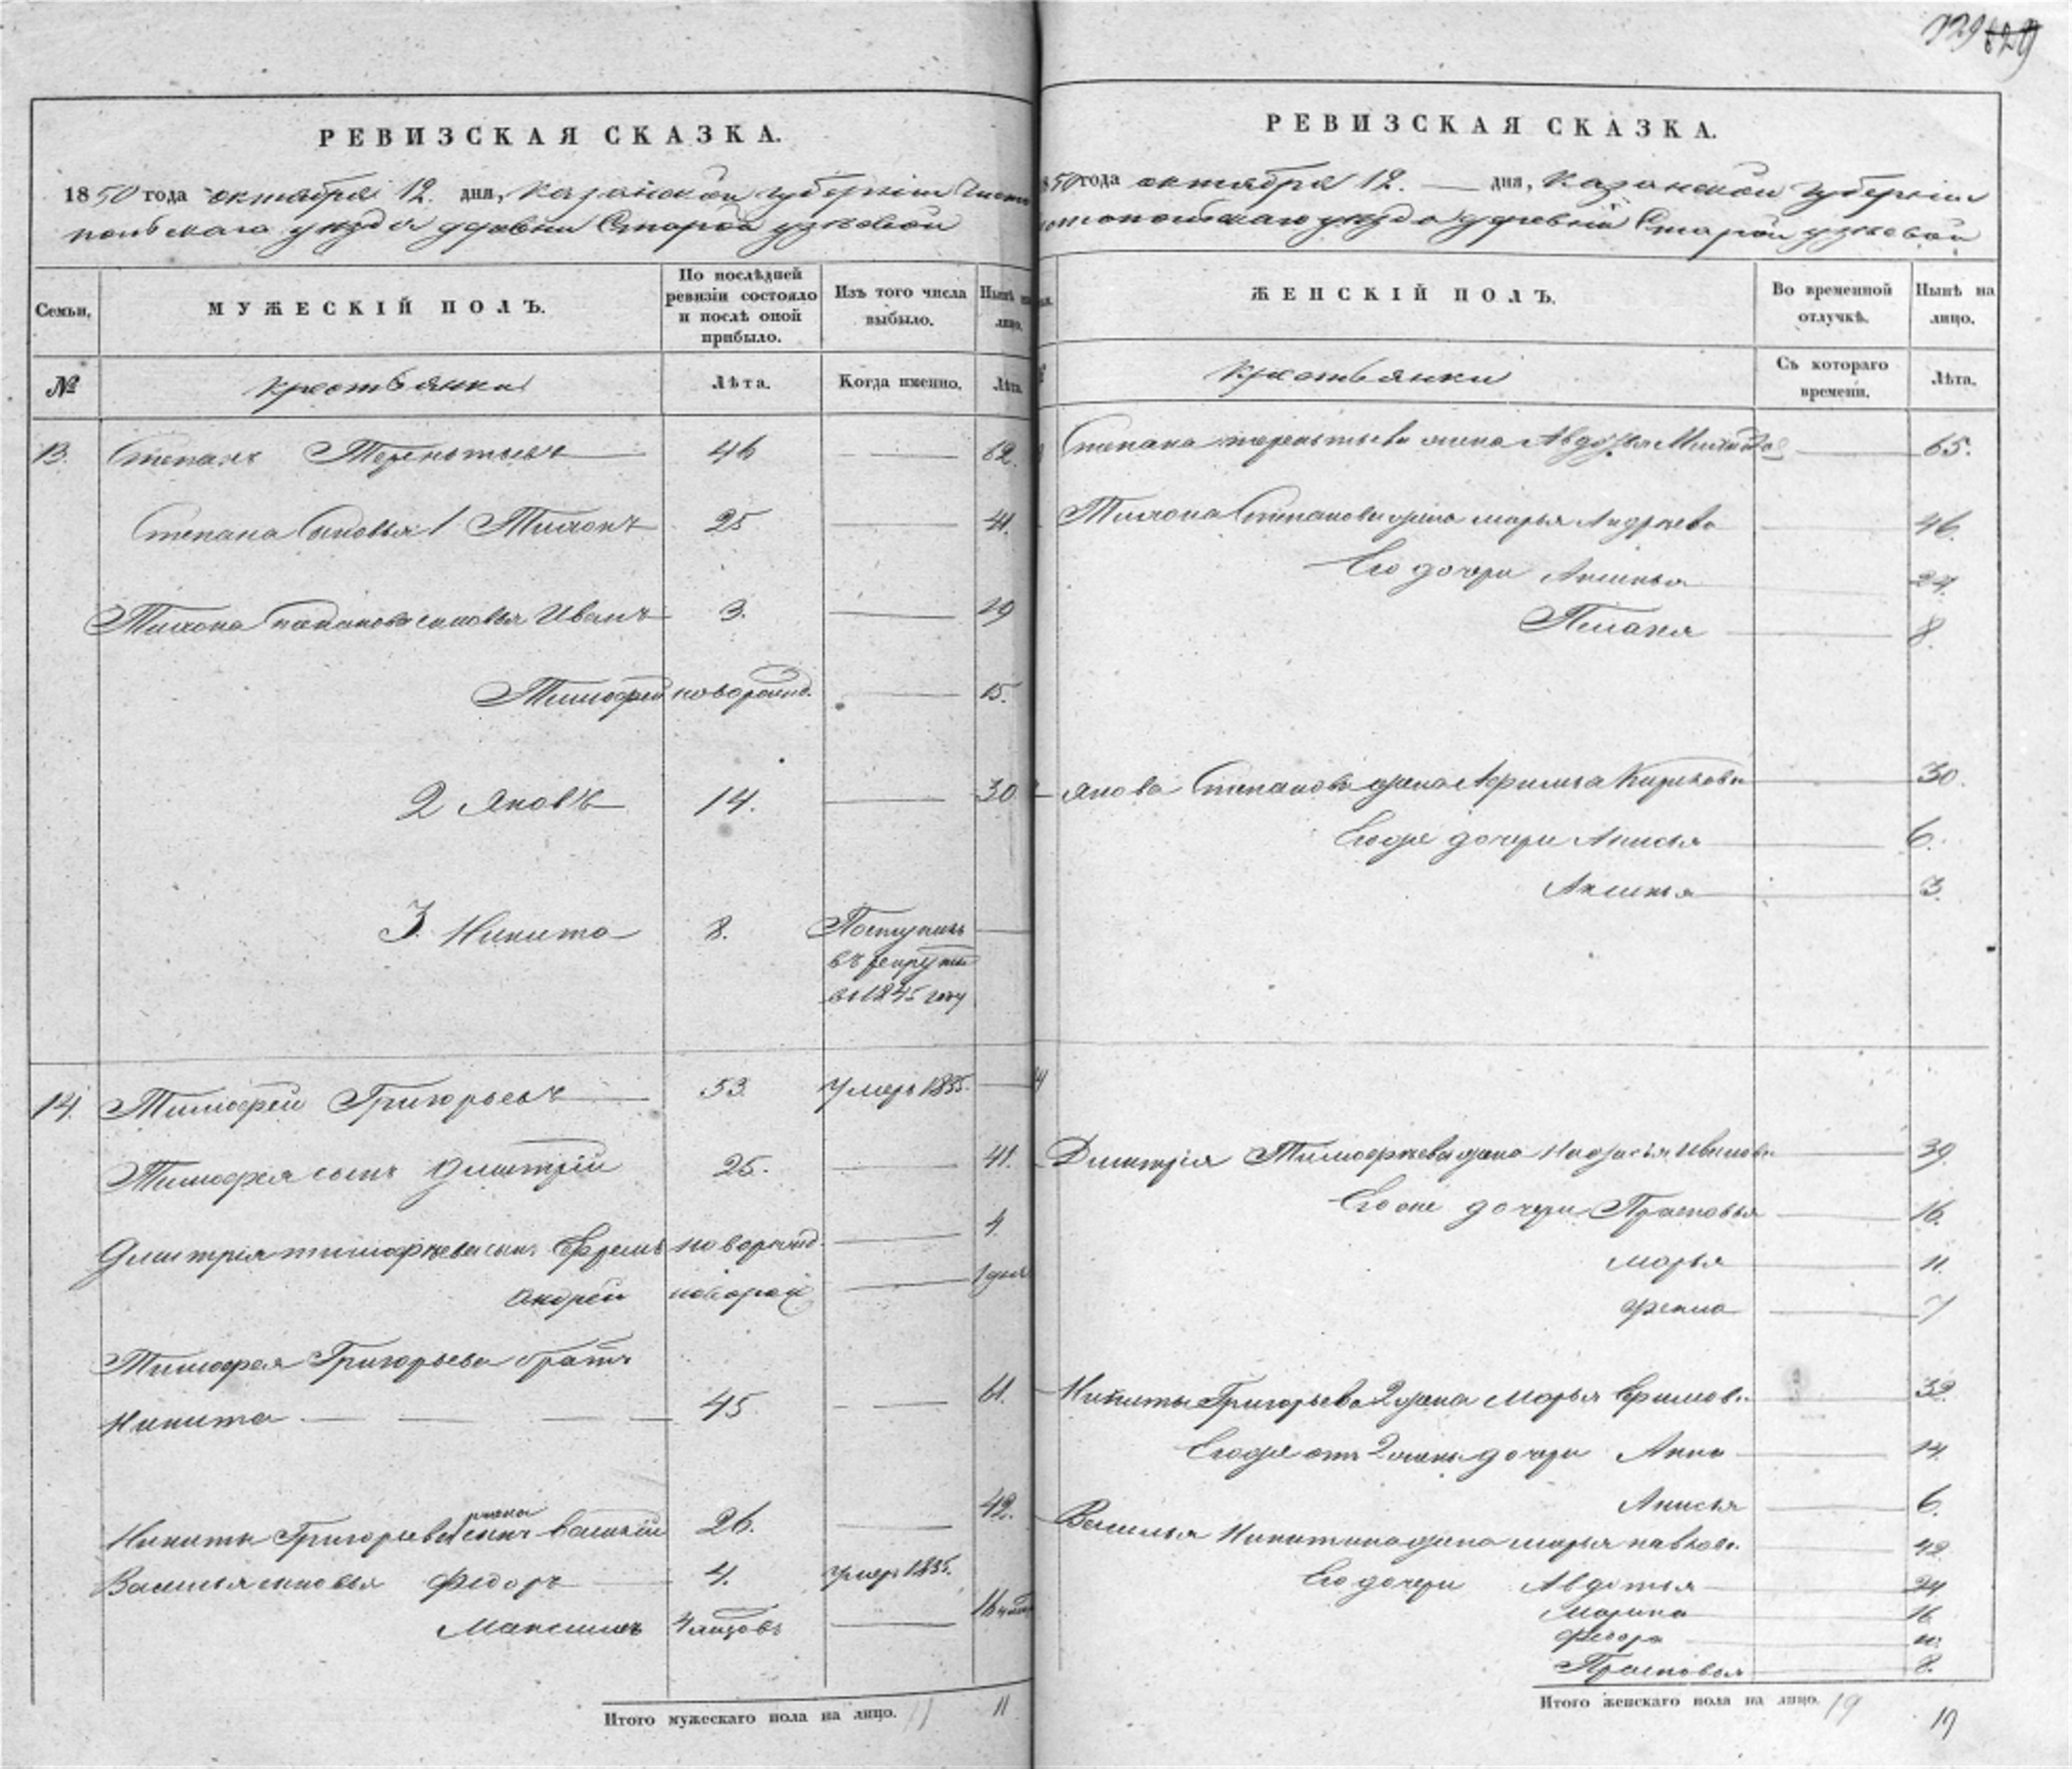 939 829
РЕВИЗСКАЯ СКАЗКА.
1850 года октября 12. дня, Казанской губернии Чисто
польскаго уезда деревни Старой узеевой
Семьи.
МУЖЕСКІЙ ПОЛЪ.
По послѣдней ревизіи состояло и послѣ оной прибыло.
Изъ того числа выбыло.
Нынѣ на лицо.
№
крестьянки
Лѣта.
Когда именно.
Лѣта.
13. Степанъ Терентьевъ 46 62.
Степана сыновья 1 Тихонъ 25 41.
Тихона сыновья Иванъ 3. 19
Тимофей новорожд. 15.
2 Яковъ 14. 30
3. Никита 8. Поступилъ
въ рекруты
въ 1845 году
14. Тимофей Григорьевъ 53. умеръ 1835.
Тимофея сынъ Дмитрій 25. 41.
Дмитрія тимофеева сынъ Ефремъ новорожд. 4.
Андрей новорож 1 дня
Тимофея Григорьева братъ
Никита 45 61.
Никиты Григорьева сынъ Василій 26. 42.
Василья сыновья Федоръ 4. умеръ 1835.
Максимъ 16
Итого мужескаго пола на лицо. 11 11
РЕВИЗСКАЯ СКАЗКА.
1850 года октября 12. дня, Казанской губерніи
уезда деревни Старой узеевой
ЖЕНСКІЙ ПОЛЪ.
Во временной отлучкѣ.
Нынѣ на лицо.
крестьянки
Съ котораго времени.
Лѣта.
Степана терентьева жена Авдотья 65.
Тихона Степанова жена марья Андреева 46.
Его дочери Аксинья 24.
Пелагея 8.
Якова Степанова жена 30.
Его же дочери Анисья 6.
Аксинья 3.
14
Дмитрія Тимофеева жена Настасья Иванова 39.
Его же дочери Прасковья 16.
марья 11.
фекла 7
Никиты Григорьева 2 жена Марья Ефимова 32.
Его же отъ 2 жены дочери Анна 14.
Анисья 6.
Василья Никитина жена марья павлова 42.
Его дочери Авдотья 24
Марина 16
Федора
Прасковья 8.
Итого женскаго пола на лицо. 19 19